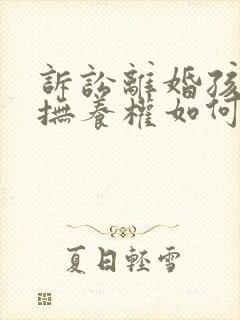 訴訟離婚孩
撫養權如何
夏日輕雪